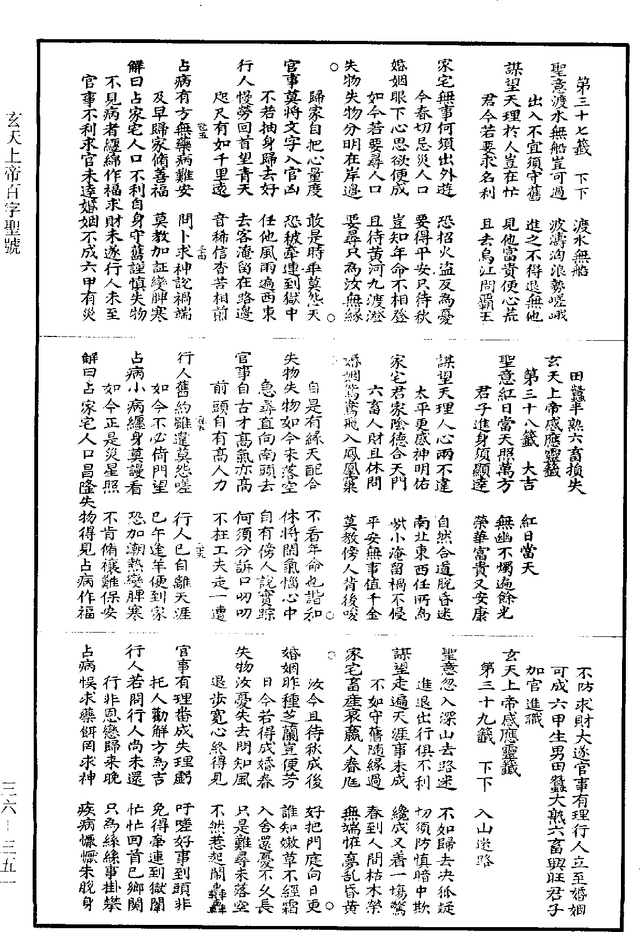 第三十七籤　下下　渡水無船
聖意渡水無船豈可過　波濤洶浪勢嗟峨
出入不宜須守舊　進之不得退無他
謀望天理於人豈在忙　見他富貴便心荒
君今若要求名利　且去烏江問霸王
家宅無事何須出外遊　恐招火盜及為憂
今春切忌災人口　要得平安只待秋
婚姻眼下心思欲便成　豈知年命不相登
如今若要尋人口　且待黃河九渡澄
失物失物分明在岸邊　要尋只為汝無緣
歸家自把心量度　敢是時乖莫怨天
官事莫將文字入官凶　恐被牽連到獄中
不若抽身歸去好　任他風雨過西東
行人慢勞回首望青天　去客淹留在路邊
咫尺有如千里遠　音稀信杳苦相前
占病有方無藥病難安　問卜求神說禍端
及早歸家脩善福　莫教加証變脾寒
解曰占家宅人口不利自身守舊謹慎失物
不見病者纏綿作福求財未遂行人未至
官事不利求官未達婚姻不成六甲有災
田蠶半熟六畜損失
玄天上帝感應靈籤
第三十八籤　大吉　紅日當天
聖意紅日當天照萬方　無幽不燭遍餘光
君子進身須顯達　榮華富貴又安康
謀望天理人心兩不違　自然合道脫昏迷
太平更感神明佑　南北東西任所為
家宅君家陰德合天門　些小淹留禍不侵
六畜人財且休問　平安無事值千金
婚姻鴛鴦飛入鳳凰窠　莫教傍人背後唆
自是有緣天配合　不看年命也諧和
失物失物如今未落空　休將閑氣惱心中
急尋直向南頭去　自有傍人說實踪
官事自古才高氣亦高　何須分訴口叨叨
前頭自有高人力　不枉工夫走一遭
行人舊約雖違莫怨嗟　行人已自離天涯
如今不必倚門望　巳午逢羊便到家
占病小病纏身莫謾看　恐加潮熱變脾寒
如今正是災星照　不肯脩禳難保安
解曰占家宅人口昌隆失物得見占病作福
不防求財大遂官事有理行人立至婚姻
可成六甲生男田蠶大熟六畜興旺君子
加官進職
玄天上帝感應靈籤
第三十九籤　下下　入山迷路
聖意忽入深山去路迷　不如歸去決狐疑
進退出行俱不利　切須防慎暗中欺
謀望走遍天涯事未成　纔成又善一場驚
不如守舊隨緣過　春到人間枯木榮
家宅畜產衰羸人眷尫　無端怪夢亂昏黃
汝今且待秋成後　好把門庭向日更
婚姻昨種芝蘭豈便芳　誰知嫩草不經霜
日今若得成婚眷　入舍還憂不久長
失物汝憂失去問知風　只是難尋未落空
退步寬心終得見　不然惹起閙轟轟
官事有理番成失理虧　吁嗟好事到頭非
托人勸解方為吉　免得牽連到獄闈
行人若問行人尚未還　忙忙回首已鄉關
行非恩戀歸來晚　只為絲絲事掛攀
占病悞求藥餌罔求神　疾病懨懨未脫身
玄天上帝百字聖號
三六－三五一